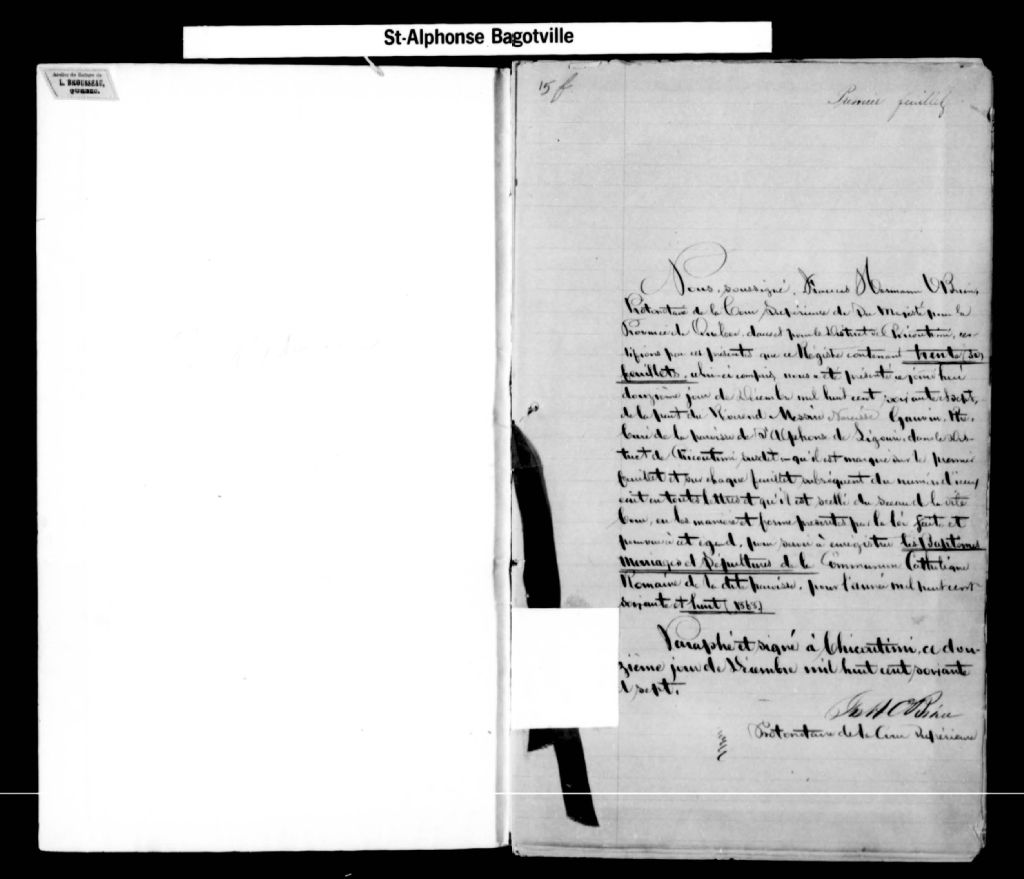 St-Alphonse Bagotville
Atelier de Reliure de
L. BROUSSEAU,
QUEBEC.
15 f
Premier feuillet
Nous, soussigné, Francis Hermann O'Brien,
Protonotaire de la Cour Supérieure de Sa Majesté pour la
Province de Quebec, dans et pour le District de Chicoutimi, cer-
tifions par ces présentes que ce Régistre contenant trente (30)
feuillets, celui-ci compris, nous a été présenté ce jourd'hui
douzième jour de Décembre mil huit cent soixante et sept,
de la part du Révérend Messire Narcisse Gauvin, Ptre
Curé de la paroisse de St Alphonse de Ligouri, dans le Dis-
trict de Chicoutimi susdit qu'il est marqué sur le premier
feuillet et sur chaque feuillet subséquent du numéro d'iceux
écrit en toutes lettres et qu'il est scellé du sceau de la dite
Cour, en la manière et forme prescrites par la loi faite et
pourvue à cet égard, pour servir à enregistrer les Baptêmes
Mariages et Sépultures de la Communion Catholique
Romaine de la dite paroisse, pour l'année mil huit cent
soixante et huit (1868)
Paraphé et signé à Chicoutimi, ce dou-
zième jour de Décembre mil huit cent soixante
et sept.
Fs H O'Brien
Protonotaire de la Cour Supérieure